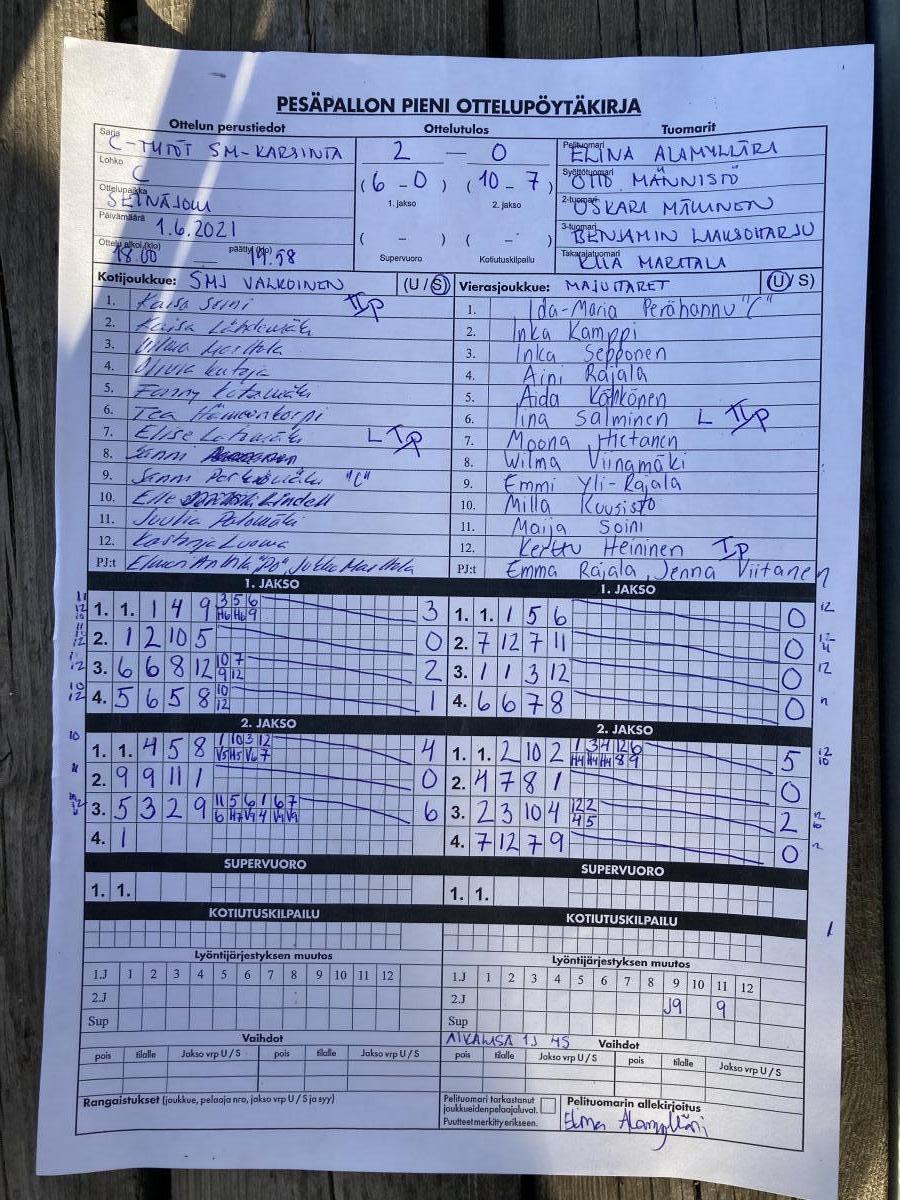 PESÄPALLON PIENI OTTELUPÖYTÄKIRJA
Ottelun perustiedot Ottelutulos Tuomarit
Sarja C-TYTÖT SM-KARSINTA
Lohko C
Ottelupaikka SEINÄJOKI
Päivämäärä 1.6.2021
Ottelu alkoi (klo) 18.00 päättyi (klo) 19.58
2 — 0
(6 - 0) (10 - 7)
1. jakso 2. jakso
( - ) ( - )
Supervuoro Kotiutuskilpailu
Pelituomari ELINA ALAMYLLÄRI
Syöttötuomari OTTO MÄNNISTÖ
2-tuomari OSKARI MÄKINEN
3-tuomari BENJAMIN LAAKSOHARJU
Takarajatuomari KIIA MARTTALA
Kotijoukkue: SMJ VALKOINEN (U / S)
1. Kaisa Soini
2. Kaisa Lähdemäki
3. Vilma Marttala
4. Olivia
5. Fanny
6. Tea
7. Elise
8. Sanni
9. Sanni "C"
10. Elle Lindell
11. Juulia
12. Luoma
PJ:t Jukka Marttala
Vierasjoukkue: MAJUTARET (U / S)
1. Ida-Maria Perähannu "C"
2. Inka Kamppi
3. Inka Sepponen
4. Aini Rajala
5. Aida Köhkönen
6. Iina Salminen L
7. Moona Hietanen
8. Wilma Viinamäki
9. Emmi Yli-Rajala
10. Milla Kuusisto
11. Maija Soini
12. Kerttu Heininen
PJ:t Emma Rajala, Jenna Viitanen
1. JAKSO
1. 1. 1 4 9 3 5 6 3
H6 H6 9
2. 1 2 10 5 0
3. 6 6 8 12 10 7 2
9 12
4. 5 6 5 8 10 1
12
1. JAKSO
1. 1. 1 5 6 0
2. 7 12 7 11 0
3. 1 1 3 12 0
4. 6 6 7 8 0
2. JAKSO
1. 1. 4 5 8 1 10 3 12 4
V5 H5 V6 7
2. 9 9 11 1 0
3. 5 3 2 9 11 5 6 1 6 7 6
6 H7 V9 4 V9 V9
4. 1
2. JAKSO
1. 1. 2 10 2 1 3 4 12 6 5
H4 H4 H4 8 9
2. 4 7 8 1 0
3. 2 3 10 4 12 2 2
4 5
4. 7 12 7 9 0
SUPERVUORO
1. 1.
SUPERVUORO
1. 1.
KOTIUTUSKILPAILU
KOTIUTUSKILPAILU
Lyöntijärjestyksen muutos
1.J 1 2 3 4 5 6 7 8 9 10 11 12
2.J
Sup
Vaihdot
pois tilalle Jakso vrp U / S pois tilalle Jakso vrp U / S
Lyöntijärjestyksen muutos
1.J 1 2 3 4 5 6 7 8 9 10 11 12
2.J J9 9
Sup
AIKALISÄ 1J 4S Vaihdot
pois tilalle Jakso vrp U / S pois tilalle Jakso vrp U / S
Rangaistukset (joukkue, pelaaja nro, jakso vrp U / S ja syy)
Pelituomari tarkastanut
joukkueiden pelaajaluvat.
Puutteet merkitty erikseen.
Pelituomarin allekirjoitus
Elina Alamylläri